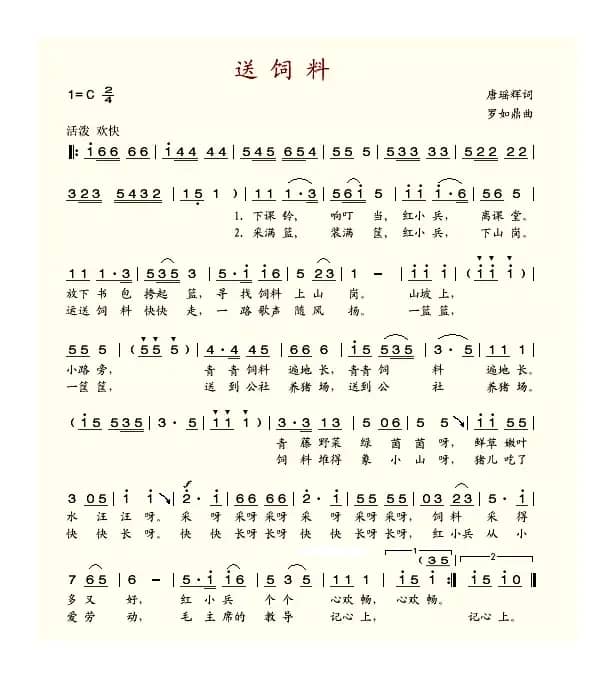 送饲料
1=C 2/4
唐瑶辉词
罗如鼎曲
活泼 欢快
‖: i66 66 | i44 44 | 545 654 | 55 5 | 533 33 | 522 22 |
323 5432 | 15 1 ) | 11 1·3 | 561 5 | 11 1·6 | 5 5 5 |
1. 下课铃， 响叮 当， 红小 兵， 离课 堂。
2. 采满 篮， 装满 筐， 红小 兵， 下山 岗。
11 1·3 | 535 3 | 5·1 16 | 5 23 | 1 - | 11 1 | ( 11 1 ) |
放下 书 包 挎起 篮， 寻 找 饲料 上 山 岗。 山坡 上，
运送 饲 料 快快 走， 一 路 歌声 随 风 扬。 一篮 篮，
55 5 | ( 55 5 ) | 4·4 45 | 66 6 | 15 535 | 3·5 | 11 1 |
小路 旁， 青 青 饲料 遍地 长， 青青 饲 料 遍地 长。
一筐 筐， 送 到 公社 养猪 场， 送到 公 社 养猪 场。
( 15 535 | 3·5 | 11 1 ) | 3·3 13 | 5 06 | 5 5 | 55 55 |
青 藤 野菜 绿 茵 茵 呀， 鲜草 嫩叶
饲 料 堆得 象 小 山 呀， 猪儿 吃了
3 05 | 1 1 | 2·1 | 66 66 | 3·5 | 55 55 | 03 23 | 5·1 |
水 汪 汪 呀。 采 呀 采呀 采呀 采 呀 采呀 采呀， 饲 料 采 得
快 快 长 呀。 快 快 长呀 长呀 快 快 长呀 长呀， 红 小兵 从 小
7 65 | 6 - | 5·1 16 | 5 35 | 11 1 | 15 1 (35 :‖ 15 10 ‖
多 又 好， 红 小 兵 个 个 心欢 畅， 心欢 畅。
爱 劳 动， 毛 主 席的 教 导 记心 上， 记心 上。